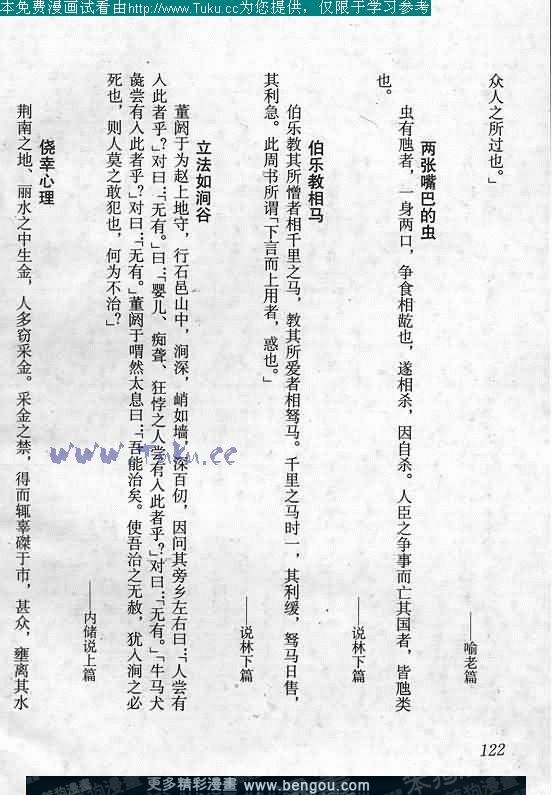 本免费漫画试看由http://www.Tuku.cc为您提供，仅限于学习参考
众人之所过也。」
——喻老篇
两张嘴巴的虫
虫有虺者，一身两口，争食相龁也，遂相杀，因自杀。人臣之争事而亡其国者，皆虺类
也。
——说林下篇
伯乐教相马
伯乐教其所憎者相千里之马，教其所爱者相驽马。千里之马时一，其利缓，驽马日售，
其利急。此周书所谓「下言而上用者，惑也。」
——说林下篇
立法如涧谷
董阏于为赵上地守，行石邑山中，涧深，峭如墙，深百仞，因问其旁乡左右曰：「人尝有
入此者乎？」对曰：「无有。」曰：「婴儿、痴聋、狂悖之人尝有入此者乎？」对曰：「无有。」「牛马犬
彘尝有入此者乎？」对曰：「无有。」董阏于喟然太息曰：「吾能治矣。使吾治之无赦，犹入涧之必
死也，则人莫之敢犯也，何为不治？」
——内储说上篇
侥幸心理
荆南之地、丽水之中生金，人多窃采金。采金之禁，得而辄辜磔于市，甚众，壅离其水
122
www.Tuku.cc
更多精彩漫画 www.bengou.com